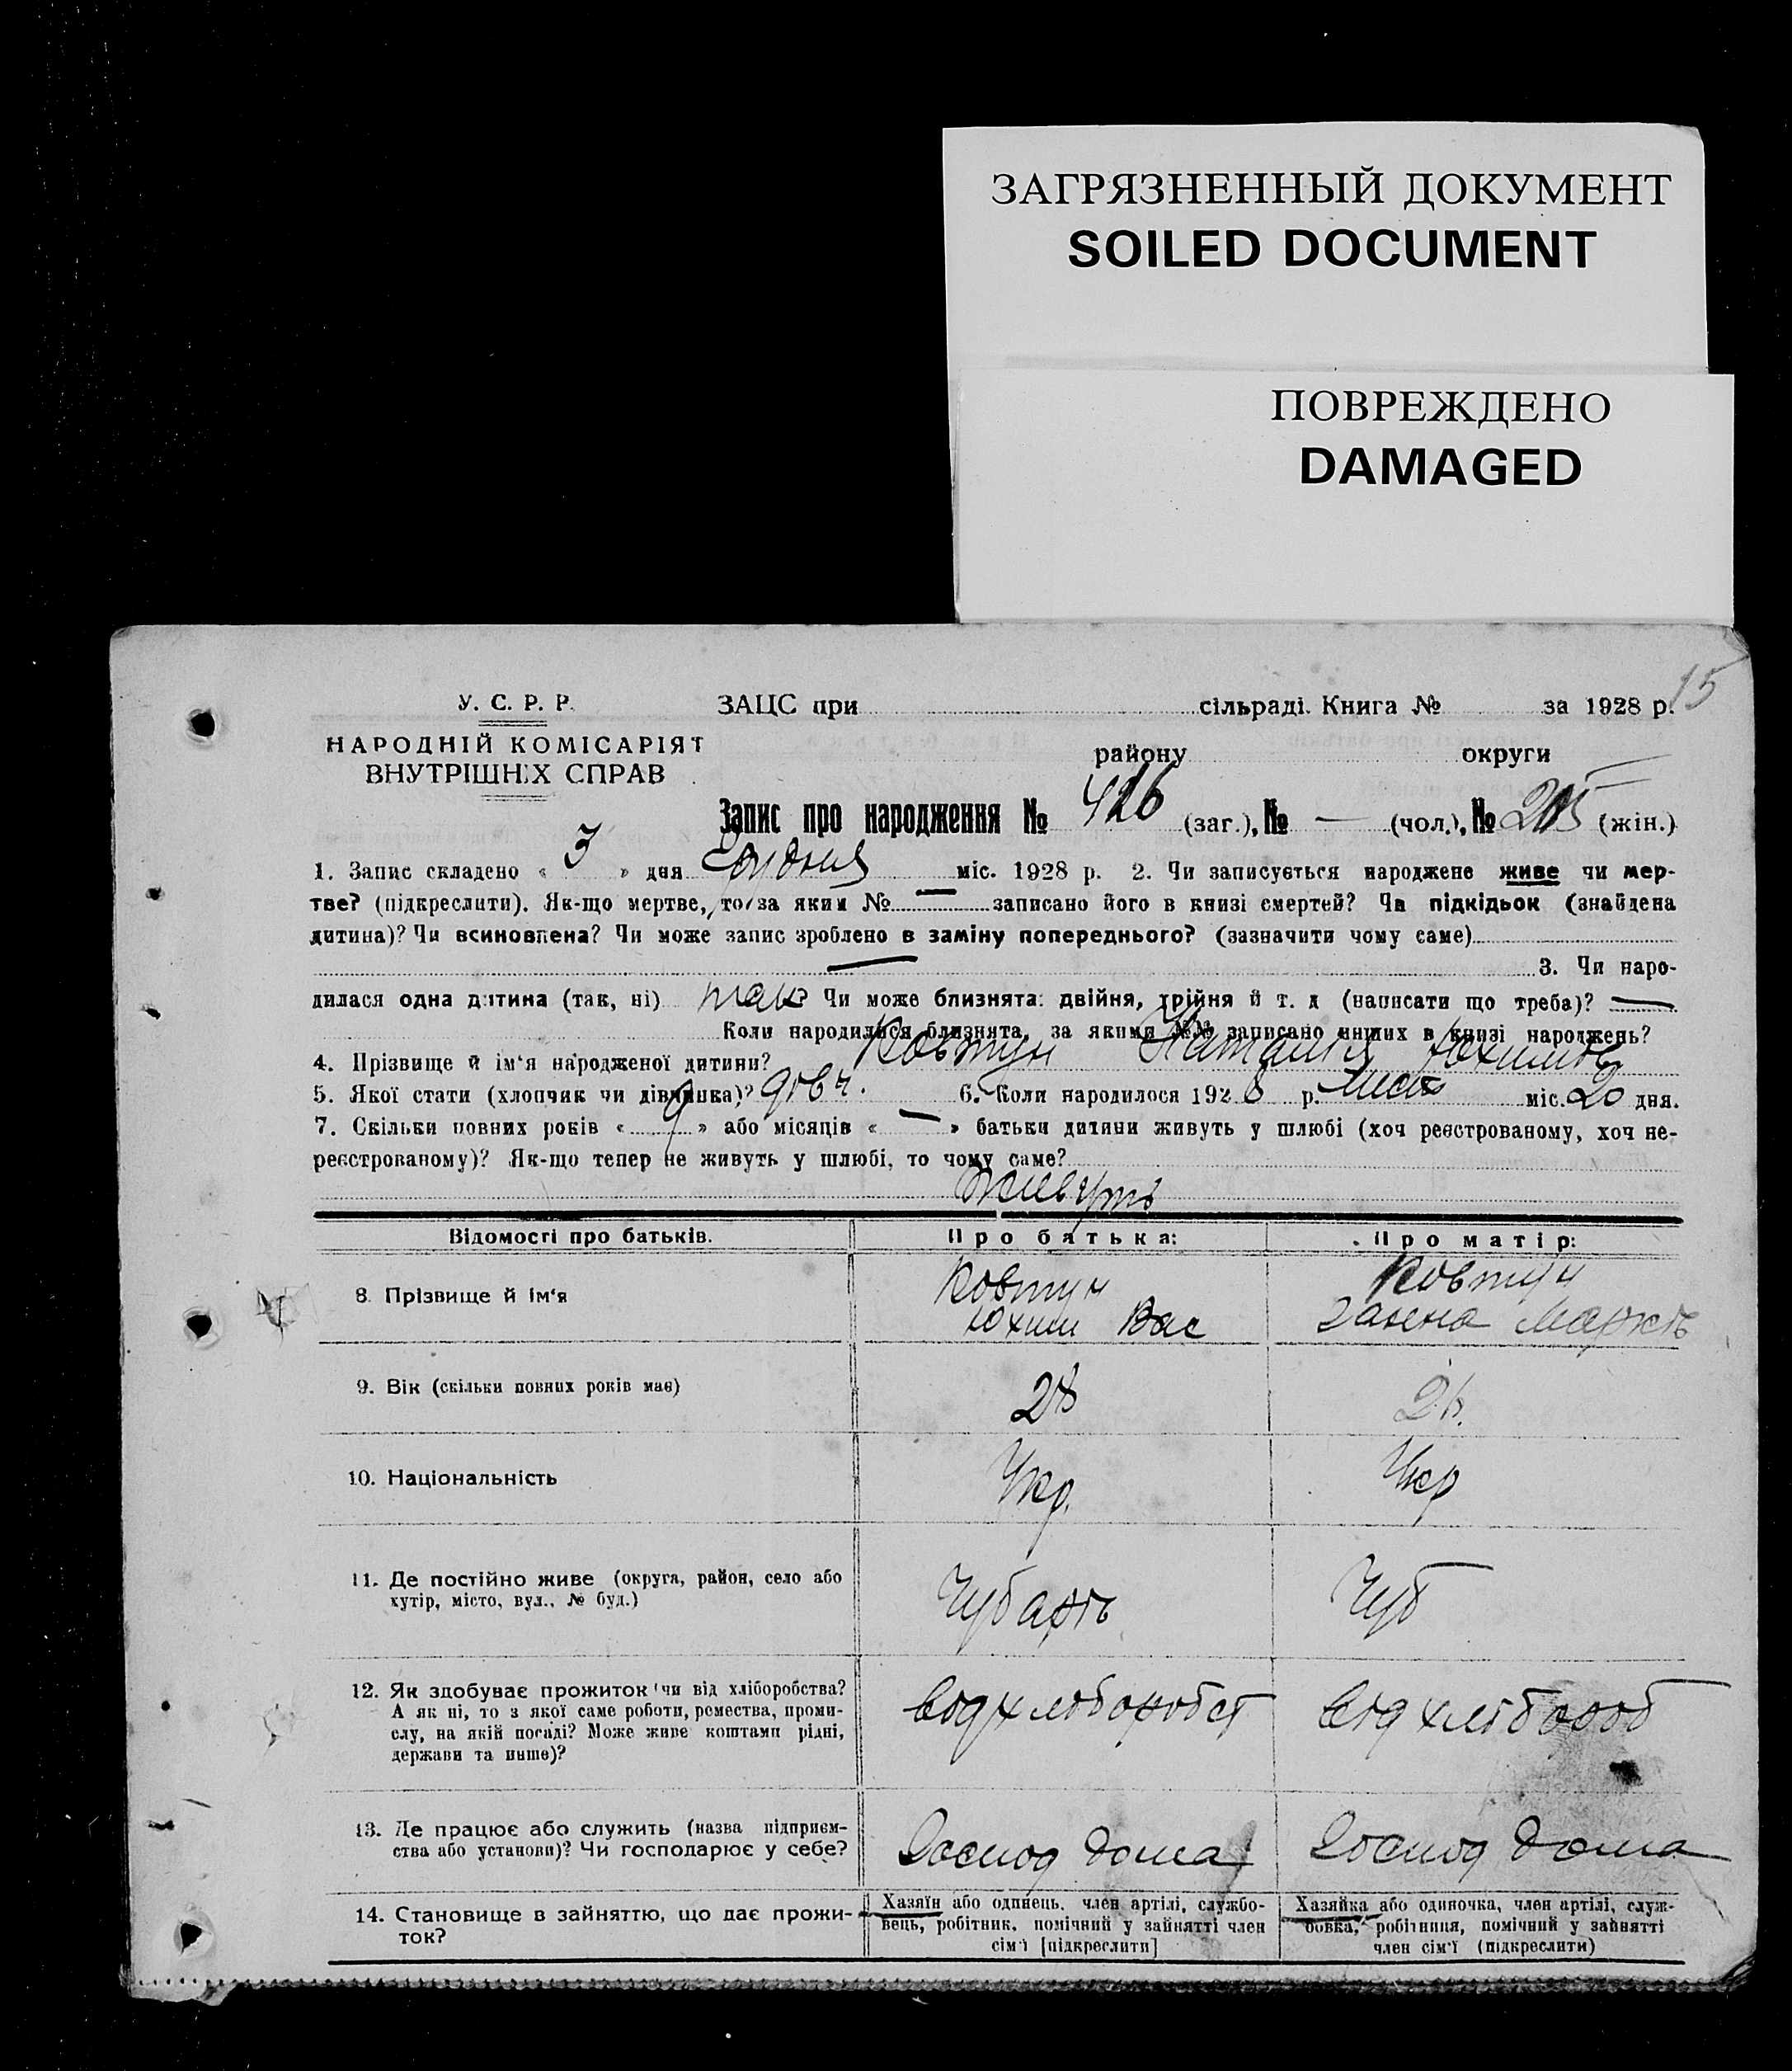 ЗАГРЯЗНЕННЫЙ ДОКУМЕНТ
SOILED DOCUMENT
ПОВРЕЖДЕНО
DAMAGED
15
У. С. Р. Р. ЗАЦС при сільраді. Книга № за 1928 р.
НАРОДНІЙ КОМІСАРІЯТ
ВНУТРІШНІХ СПРАВ
району округи
Запис про народження № 426 (заг.), № — (чол.), № 205 (жін.)
1. Запис складено « 3 » дня Грудня міс. 1928 р. 2. Чи записується народжене живе чи мер-
тве? (підкреслити). Як-що мертве, то за яким № — записано його в книзі смертей? Чи підкідьок (знайдена
дитина)? Чи всиновлена? Чи може запис зроблено в заміну попереднього? (зазначити чому саме)
— 3. Чи наро-
дилася одна дитина (так, ні) так? Чи може близнята: двійня, трійня й т. д (написати що треба)? —
Коли народилися близнята, за якими №№ записано инших в книзі народжень?
4. Прізвище й ім'я народженої дитини? Ковтун Наталія Юхимів
5. Якої стати (хлопчик чи дівчинка)? дівч. 6. Коли народилося 1928 р. Лист міс. 20 дня.
7. Скільки повних років « 9 » або місяців « — » батьки дитини живуть у шлюбі (хоч реєстрованому, хоч не-
реєстрованому)? Як-що тепер не живуть у шлюбі, то чому саме?
Живуть
Відомості про батьків. Про батька: Про матір:
8. Прізвище й ім'я Ковтун Ковтун
Юхим Вас
9. Вік (скільки повних років має) 28
10. Національність Укр. Укр
11. Де постійно живе (округа, район, село або
хутір, місто, вул., № буд.) Чубарів Чуб
12. Як здобуває прожиток чи від хліборобства?
А як ні, то з якої саме роботи, ремества, проми-
слу, на якій посаді? Може живе коштами рідні,
держави та инше)?
від хліборобст від хлібороб
13. Де працює або служить (назва підприєм-
ства або установи)? Чи господарює у себе?
Господ дома Господ дома
14. Становище в зайняттю, що дає прожи-
ток?
Хазяїн або одинець, член артілі, службо-
вець, робітник, помічний у зайнятті член
сім'ї [підкреслити]
Хазяйка або одиночка, член артілі, служ-
бовка, робітниця, помічний у зайнятті
член сім'ї (підкреслити)